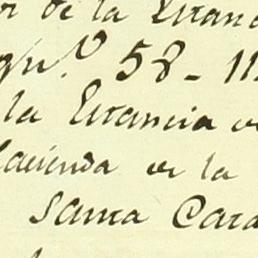 or de la Estanc
58 - 11
la Estancia
acienda en la
Santa Cata